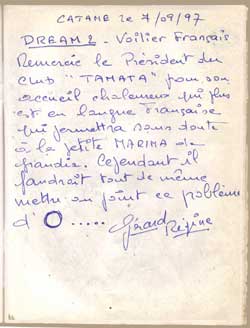 CATANE le 7/09/97
DREAM 2 - Voilier Français
Remercie le Président du
Club "TAMATA" pour son
accueil chaleureux qui plus
est en langue Française
qui permettra sans doute
à la petite MARINA de
grandir. Cependant il
faudrait tout de même
mettre au point ce problème
d'O.....
Gérard
Régine